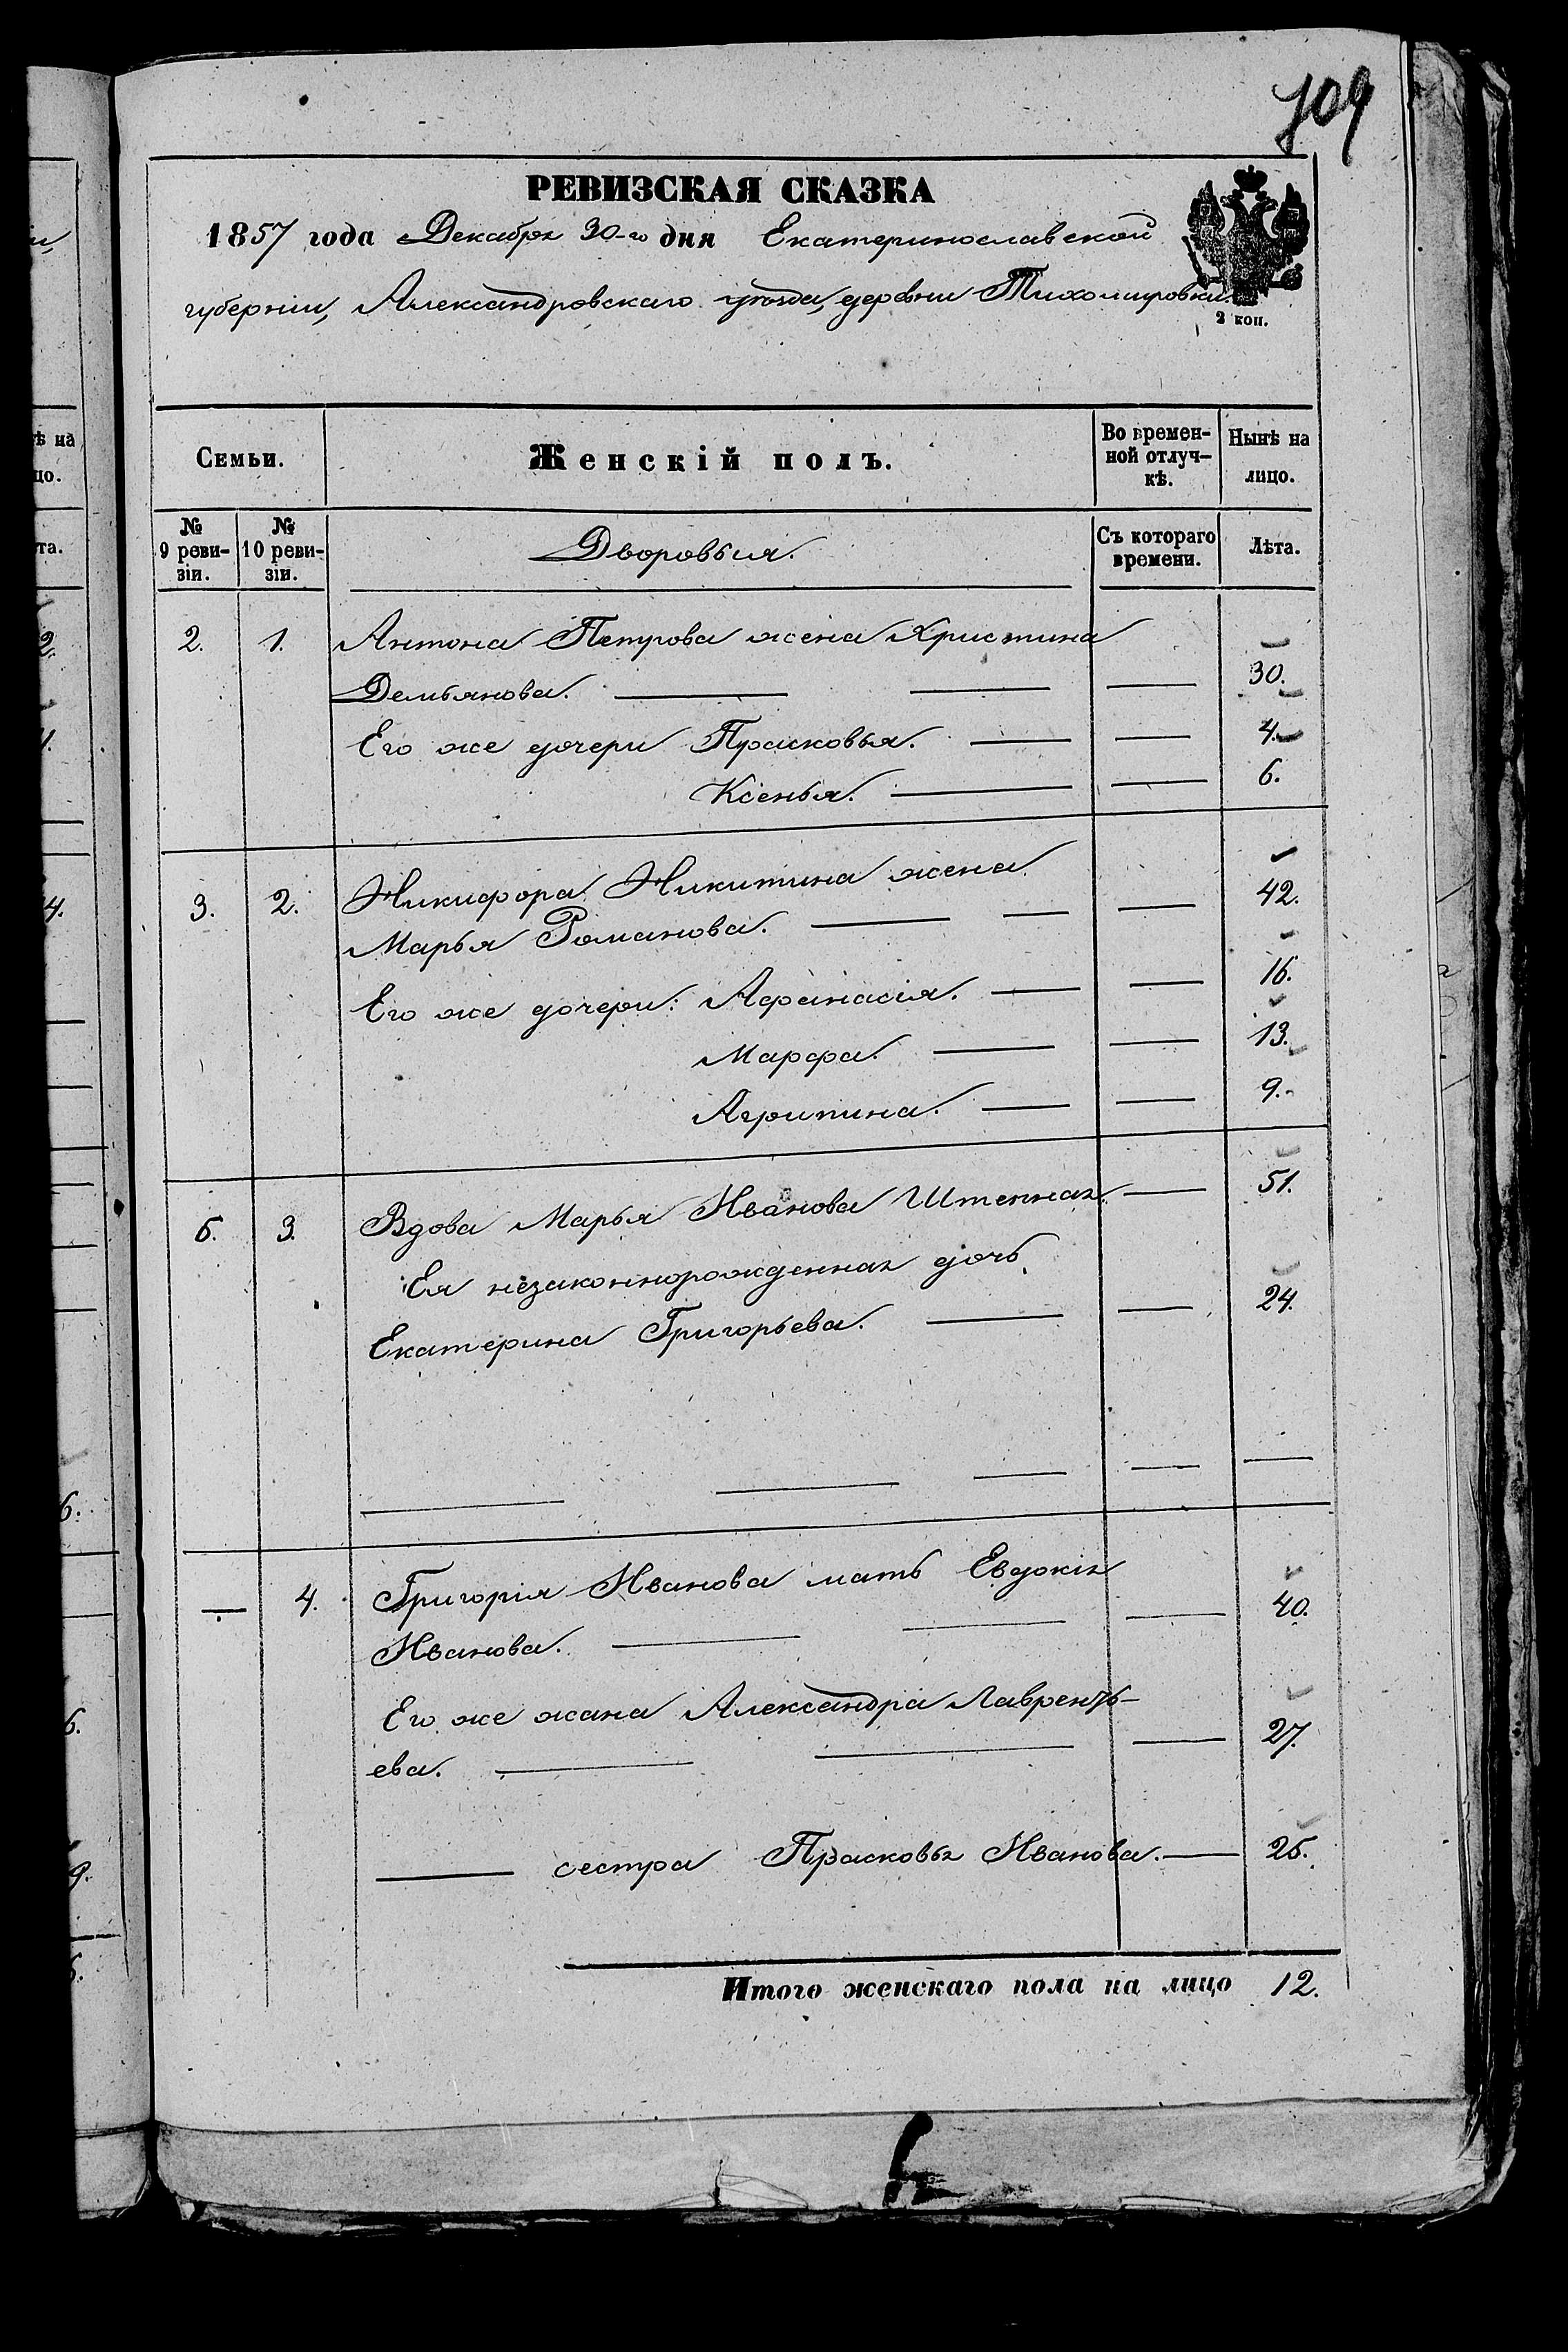 709
РЕВИЗСКАЯ СКАЗКА
1857 года Декабря 30-го дня Екатеринославской
губерніи, Александровскаго уѣзда, деревни Тихомировки.
2 коп.
Семьи. Женскій полъ. Во времен-ной отлуч-кѣ. Нынѣ на лицо.
№ 9 реви-зіи. № 10 реви-зіи. Дворовыя. Съ котораго времени. Лѣта.
2. 1. Антона Петрова жена Христина
Демьянова. 30.
Его же дочери Прасковья. 4.
Ксенья. 6.
3. 2. Никифора Никитина жена
Марья Романова. 42.
Его же дочери: Афанасія. 16.
Марфа. 13.
Агрипина. 9.
5. 3. Вдова Марья Иванова 51.
Ея незаконнорожденная дочь
Екатерина Григорьева. 24.
4. Григорія Иванова мать Евдокія
Иванова. 40.
Его же жана Александра Лавренть-
ева. 27.
сестра Прасковья Иванова. 25.
Итого женскаго пола на лицо 12.